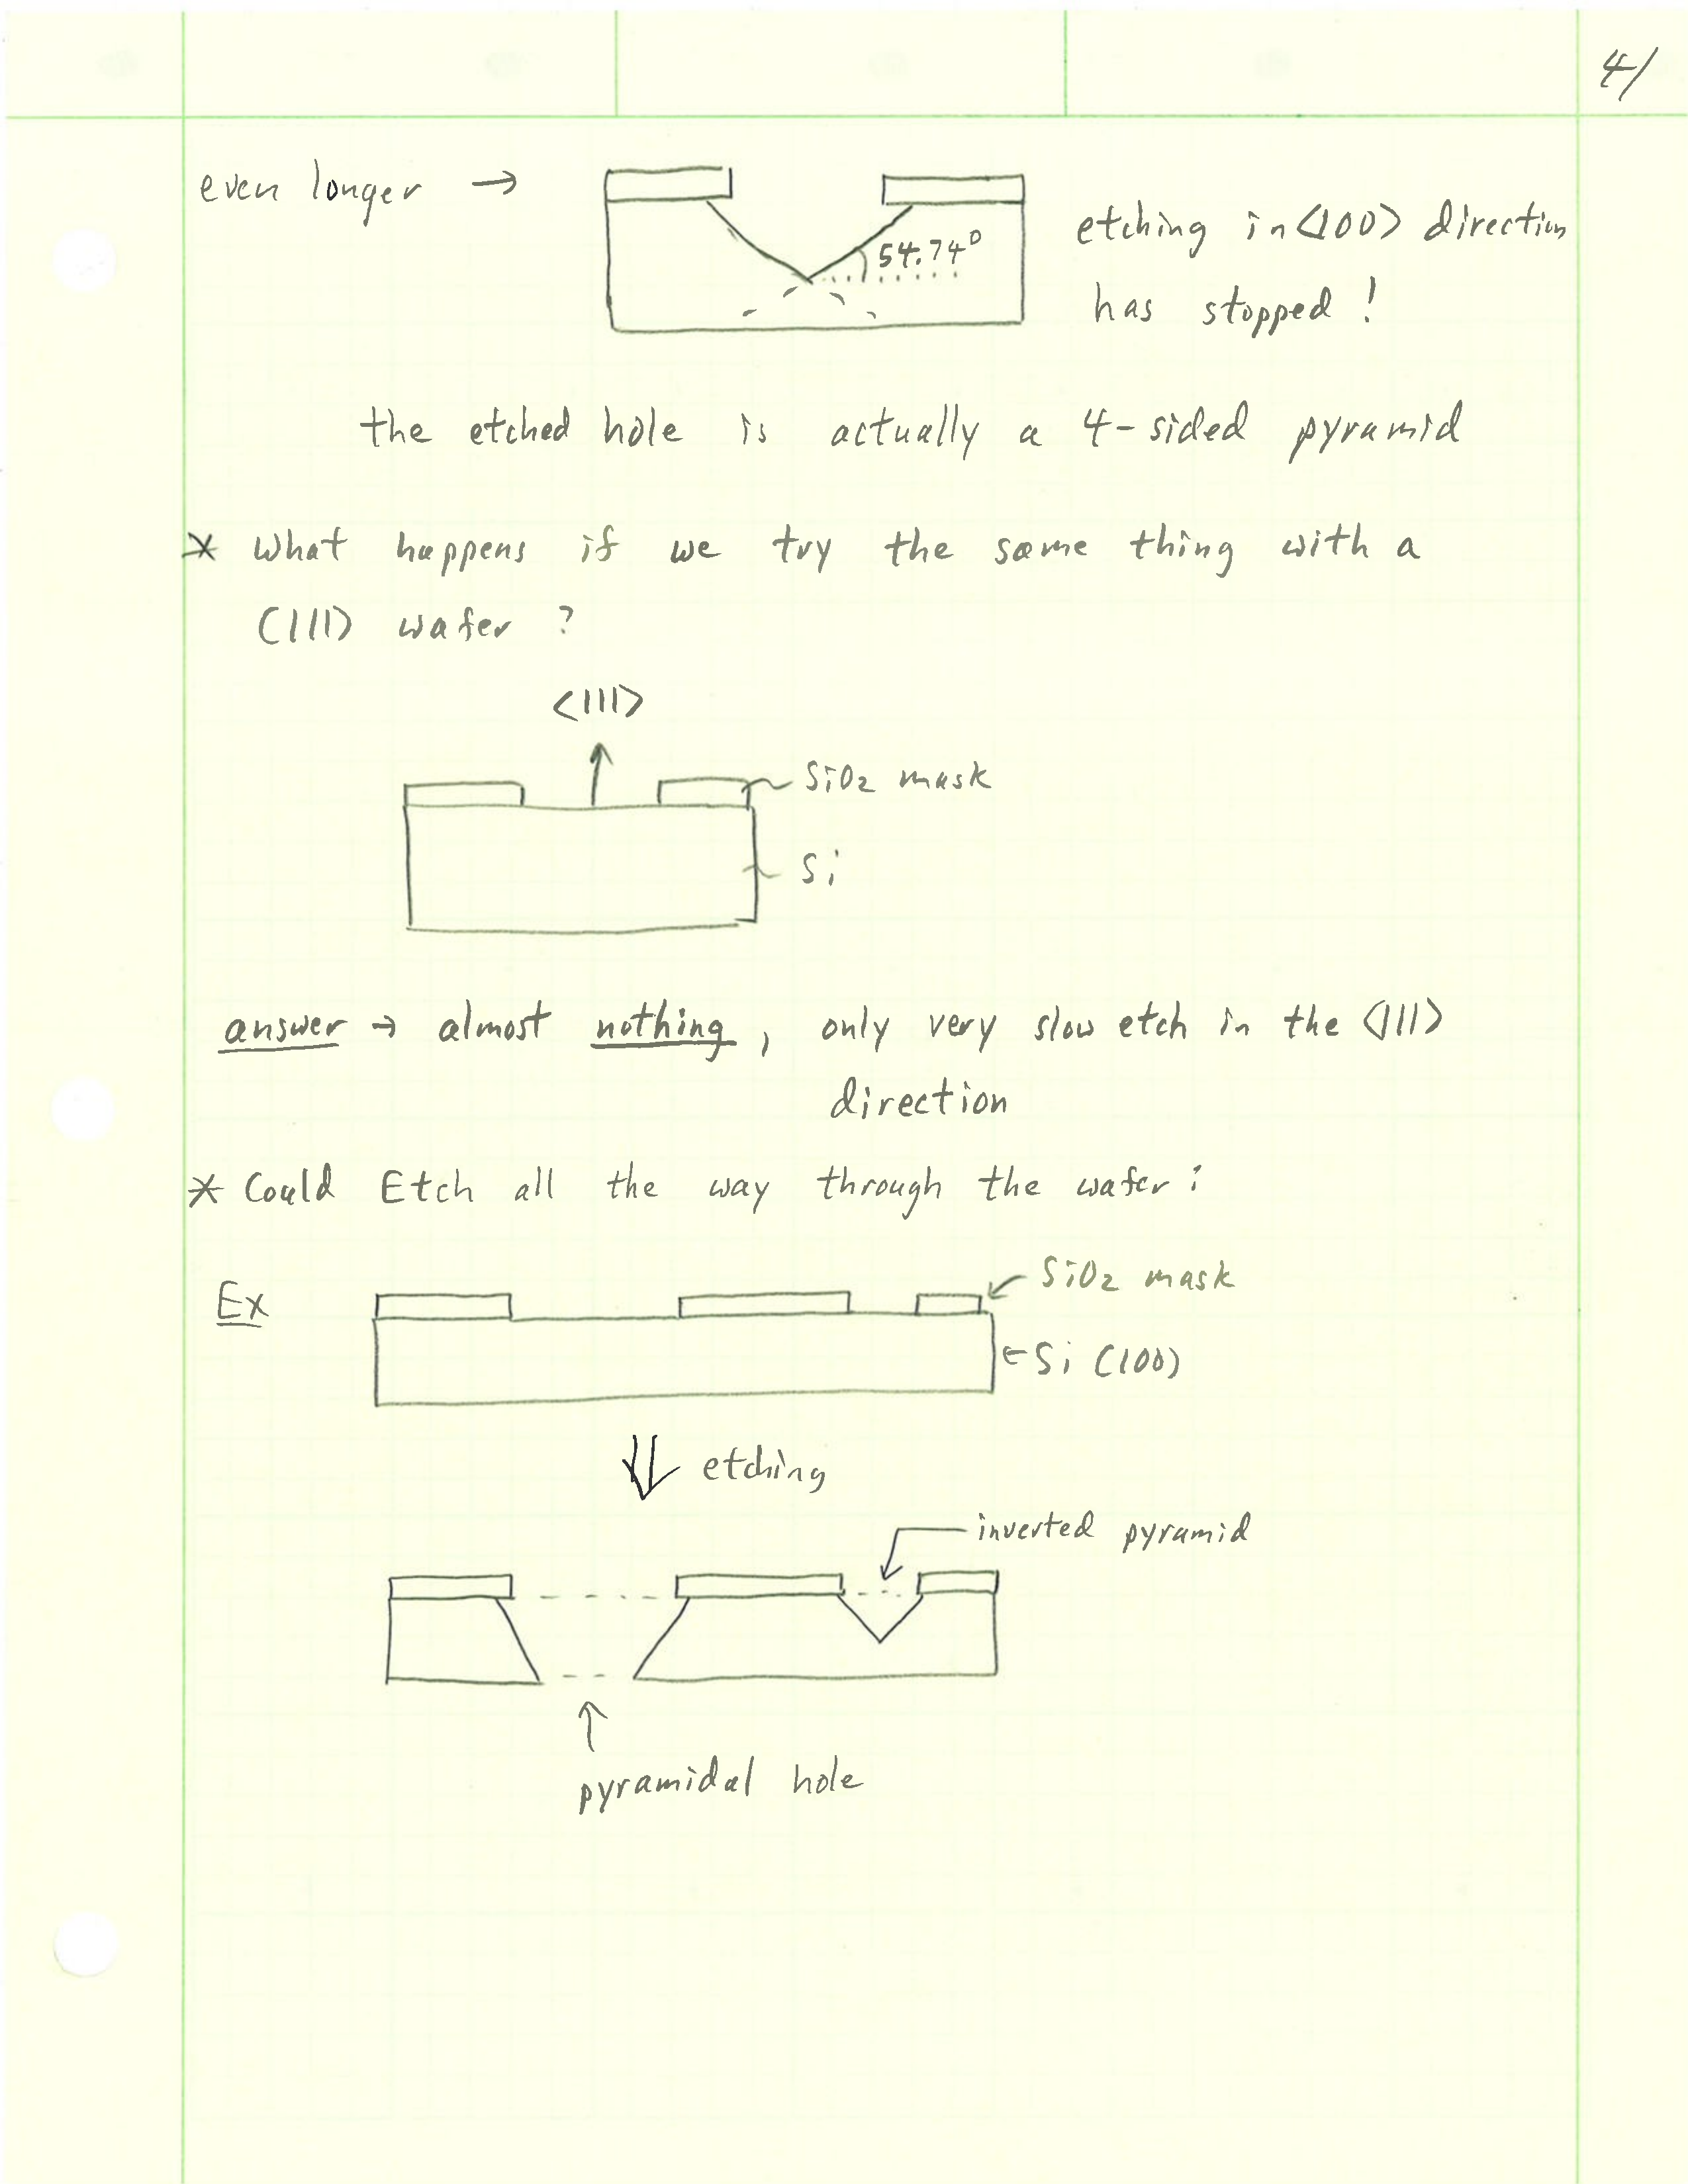 4/
even longer →
54.74°
etching in <100> direction
has stopped !
the etched hole is actually a 4-sided pyramid
* What happens if we try the same thing with a
(111> wafer ?
<111>
SiO2 mask
Si
answer → almost nothing, only very slow etch in the <111>
direction
* Could Etch all the way through the wafer:
Ex
SiO2 mask
Si (100)
etching
inverted pyramid
pyramidal hole